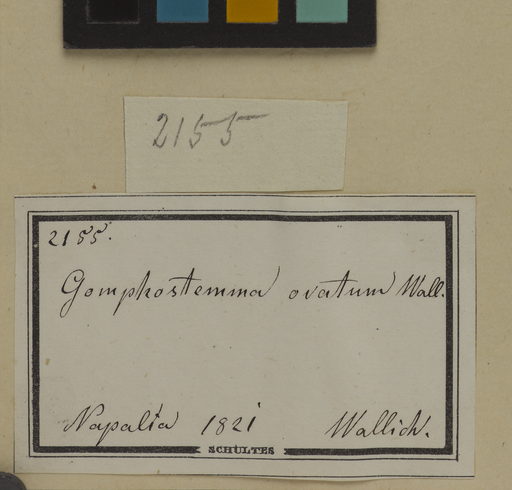 2155
2155.
Gomphostemma ovatum Wall.
Napalia 1821 Wallich.
SCHULTES